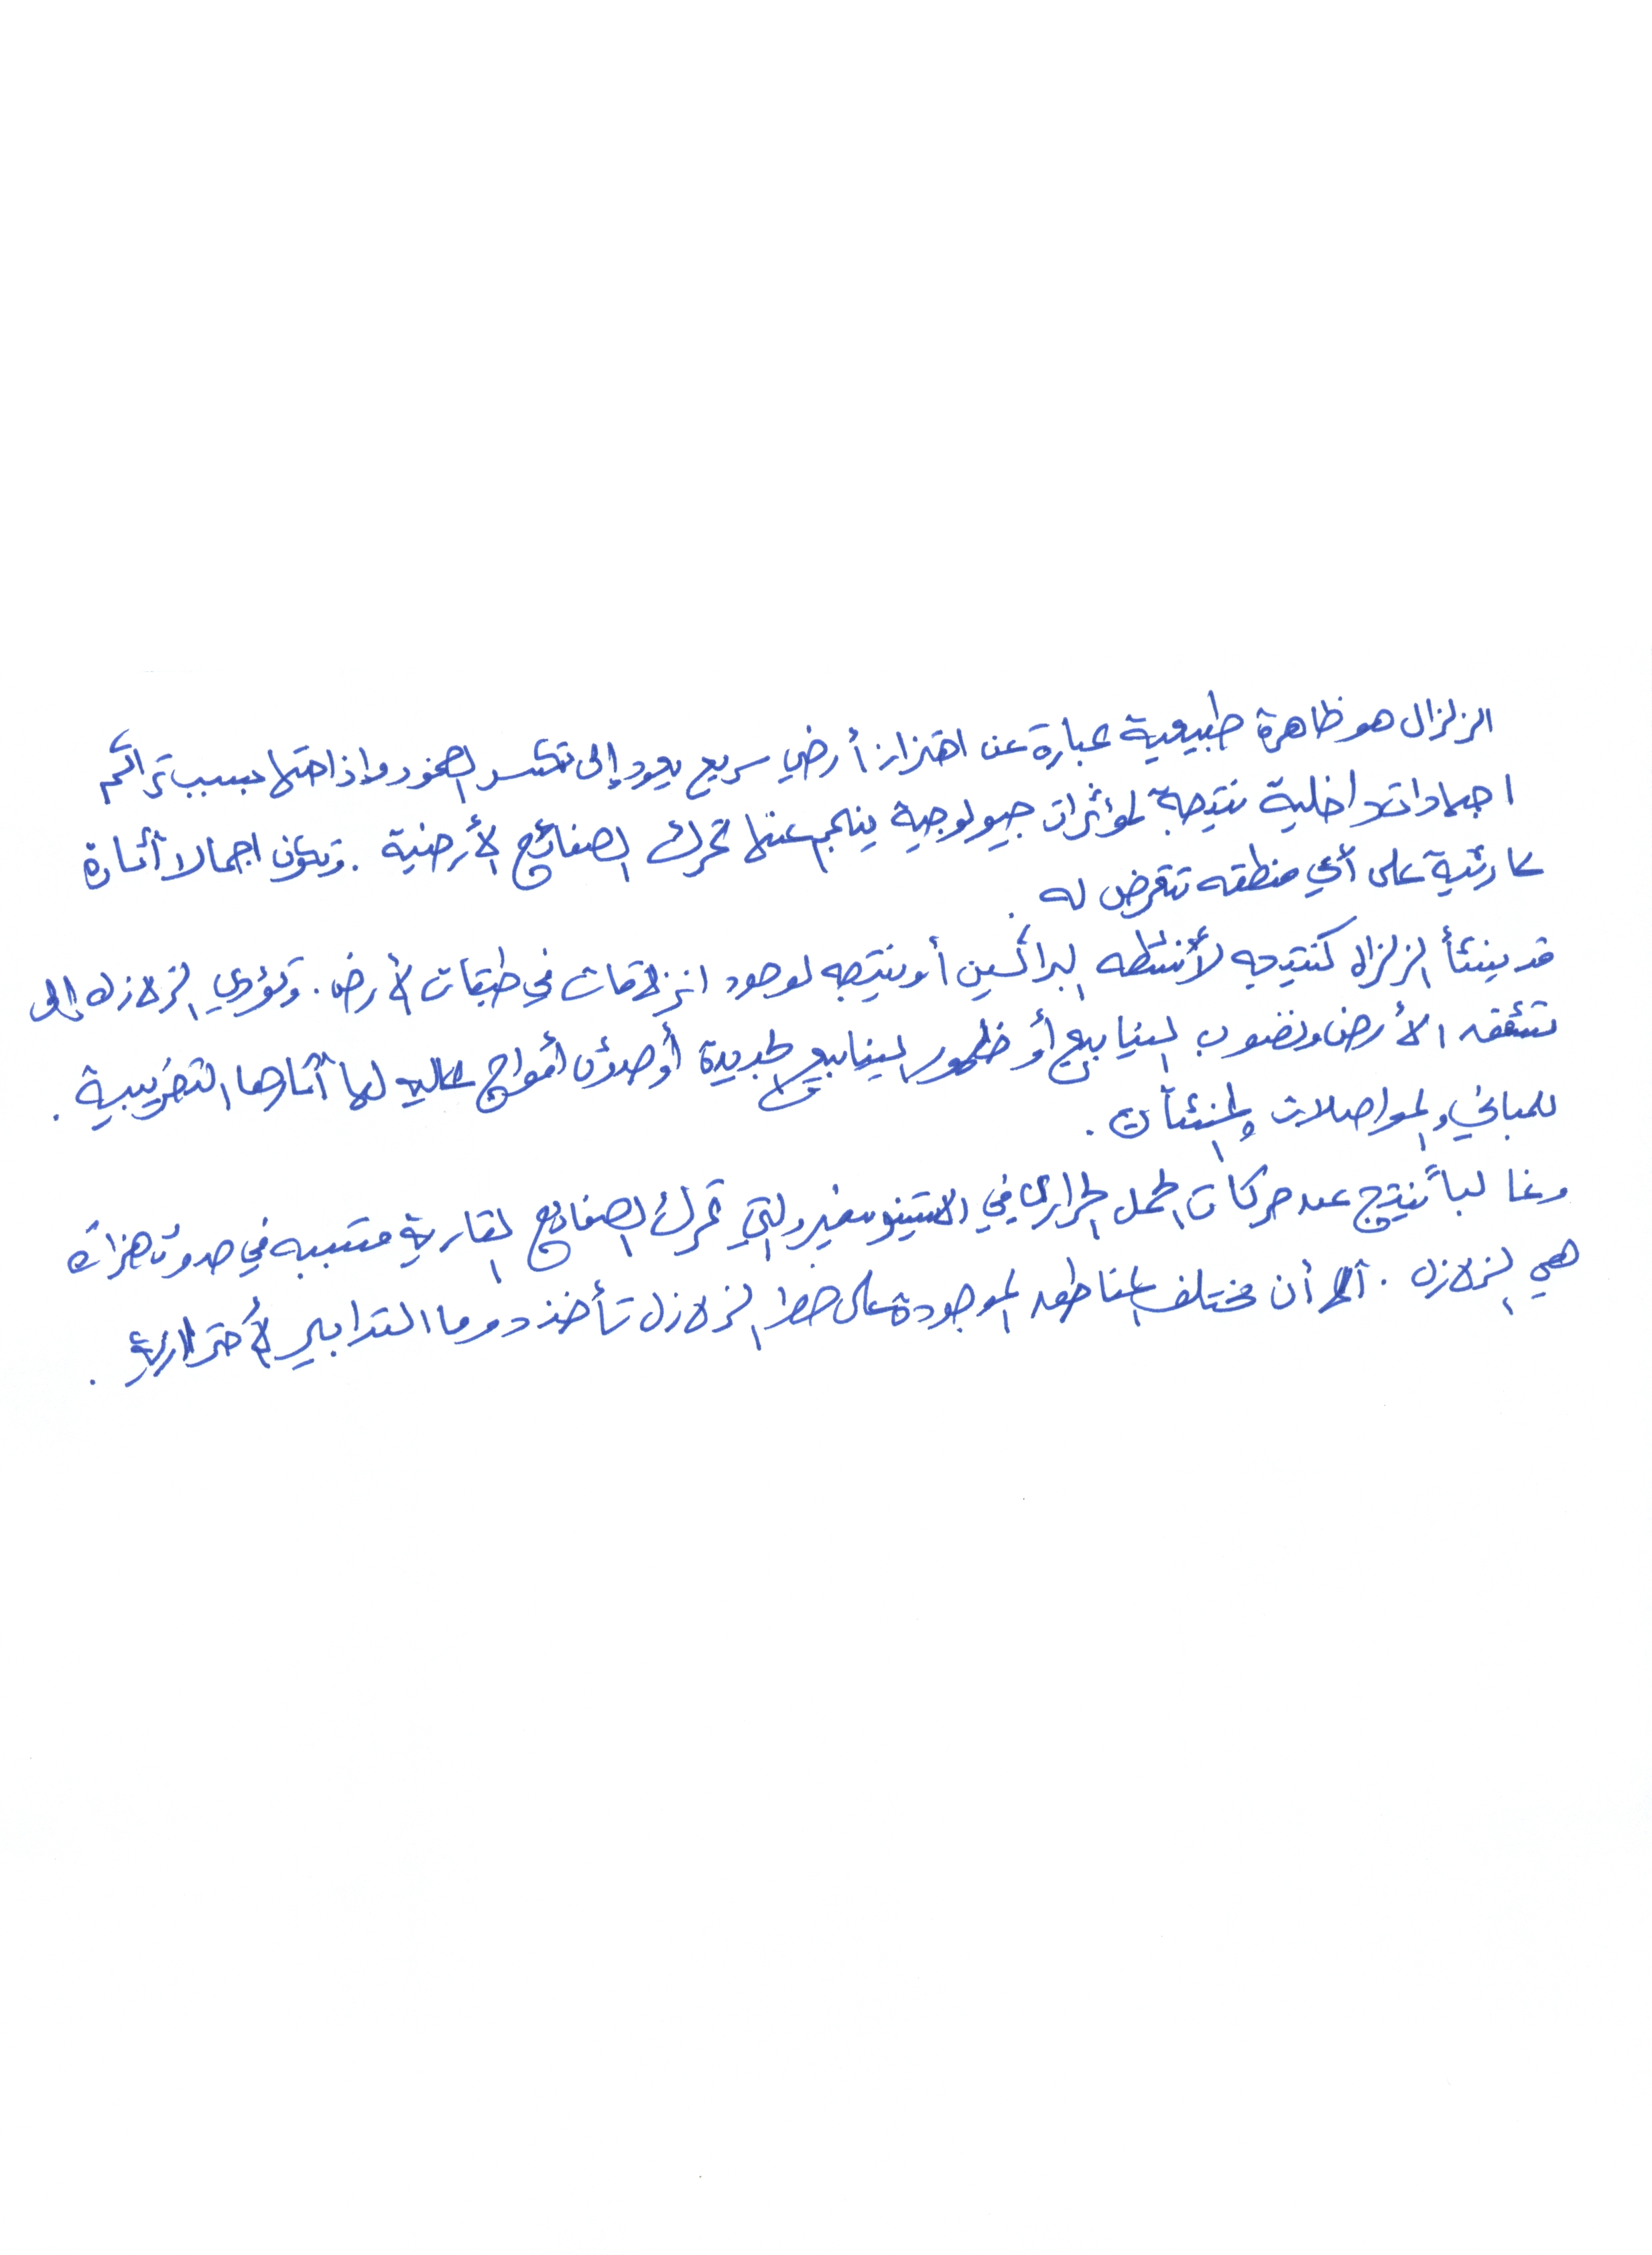 الزلزال هو ظاهرة طبيعية عبارة عن اهتزاز أرضي سريع يعود إلى تكسر الصخور وإزاحتها بسبب تراكم
اجهادات داخلية نتيجة لمؤثرات جيولوجية ينجم عنها تحرك الصفائح الأرضية . وتكون اجمالا آثارة
كارثية على أي منطقه تتعرض له .
قد ينشأ الزلزال كنتيجه لأنشطه البراكين أو نتيجه لوجود انزلاقات في طبقات الأرض . وتؤدي الزلازل إلى
تشقق الأرض ونضوب الينابيع أو ظهور الينابيع الجديدة أو حدوث أمواج عاليه لها آثارها التخريبية .
للمباني والمواصلات والمنشآت .
وغالباً ينتج عن حركات الحمل الحراري في الاستينوسفير والتي تحرك الصفائح القارية متسببه في حدوث هزات
هي الزلازل . أن مختلف المناطق الموجودة على خط الزلازل تأخذ دوما التدابير الأحترازية .